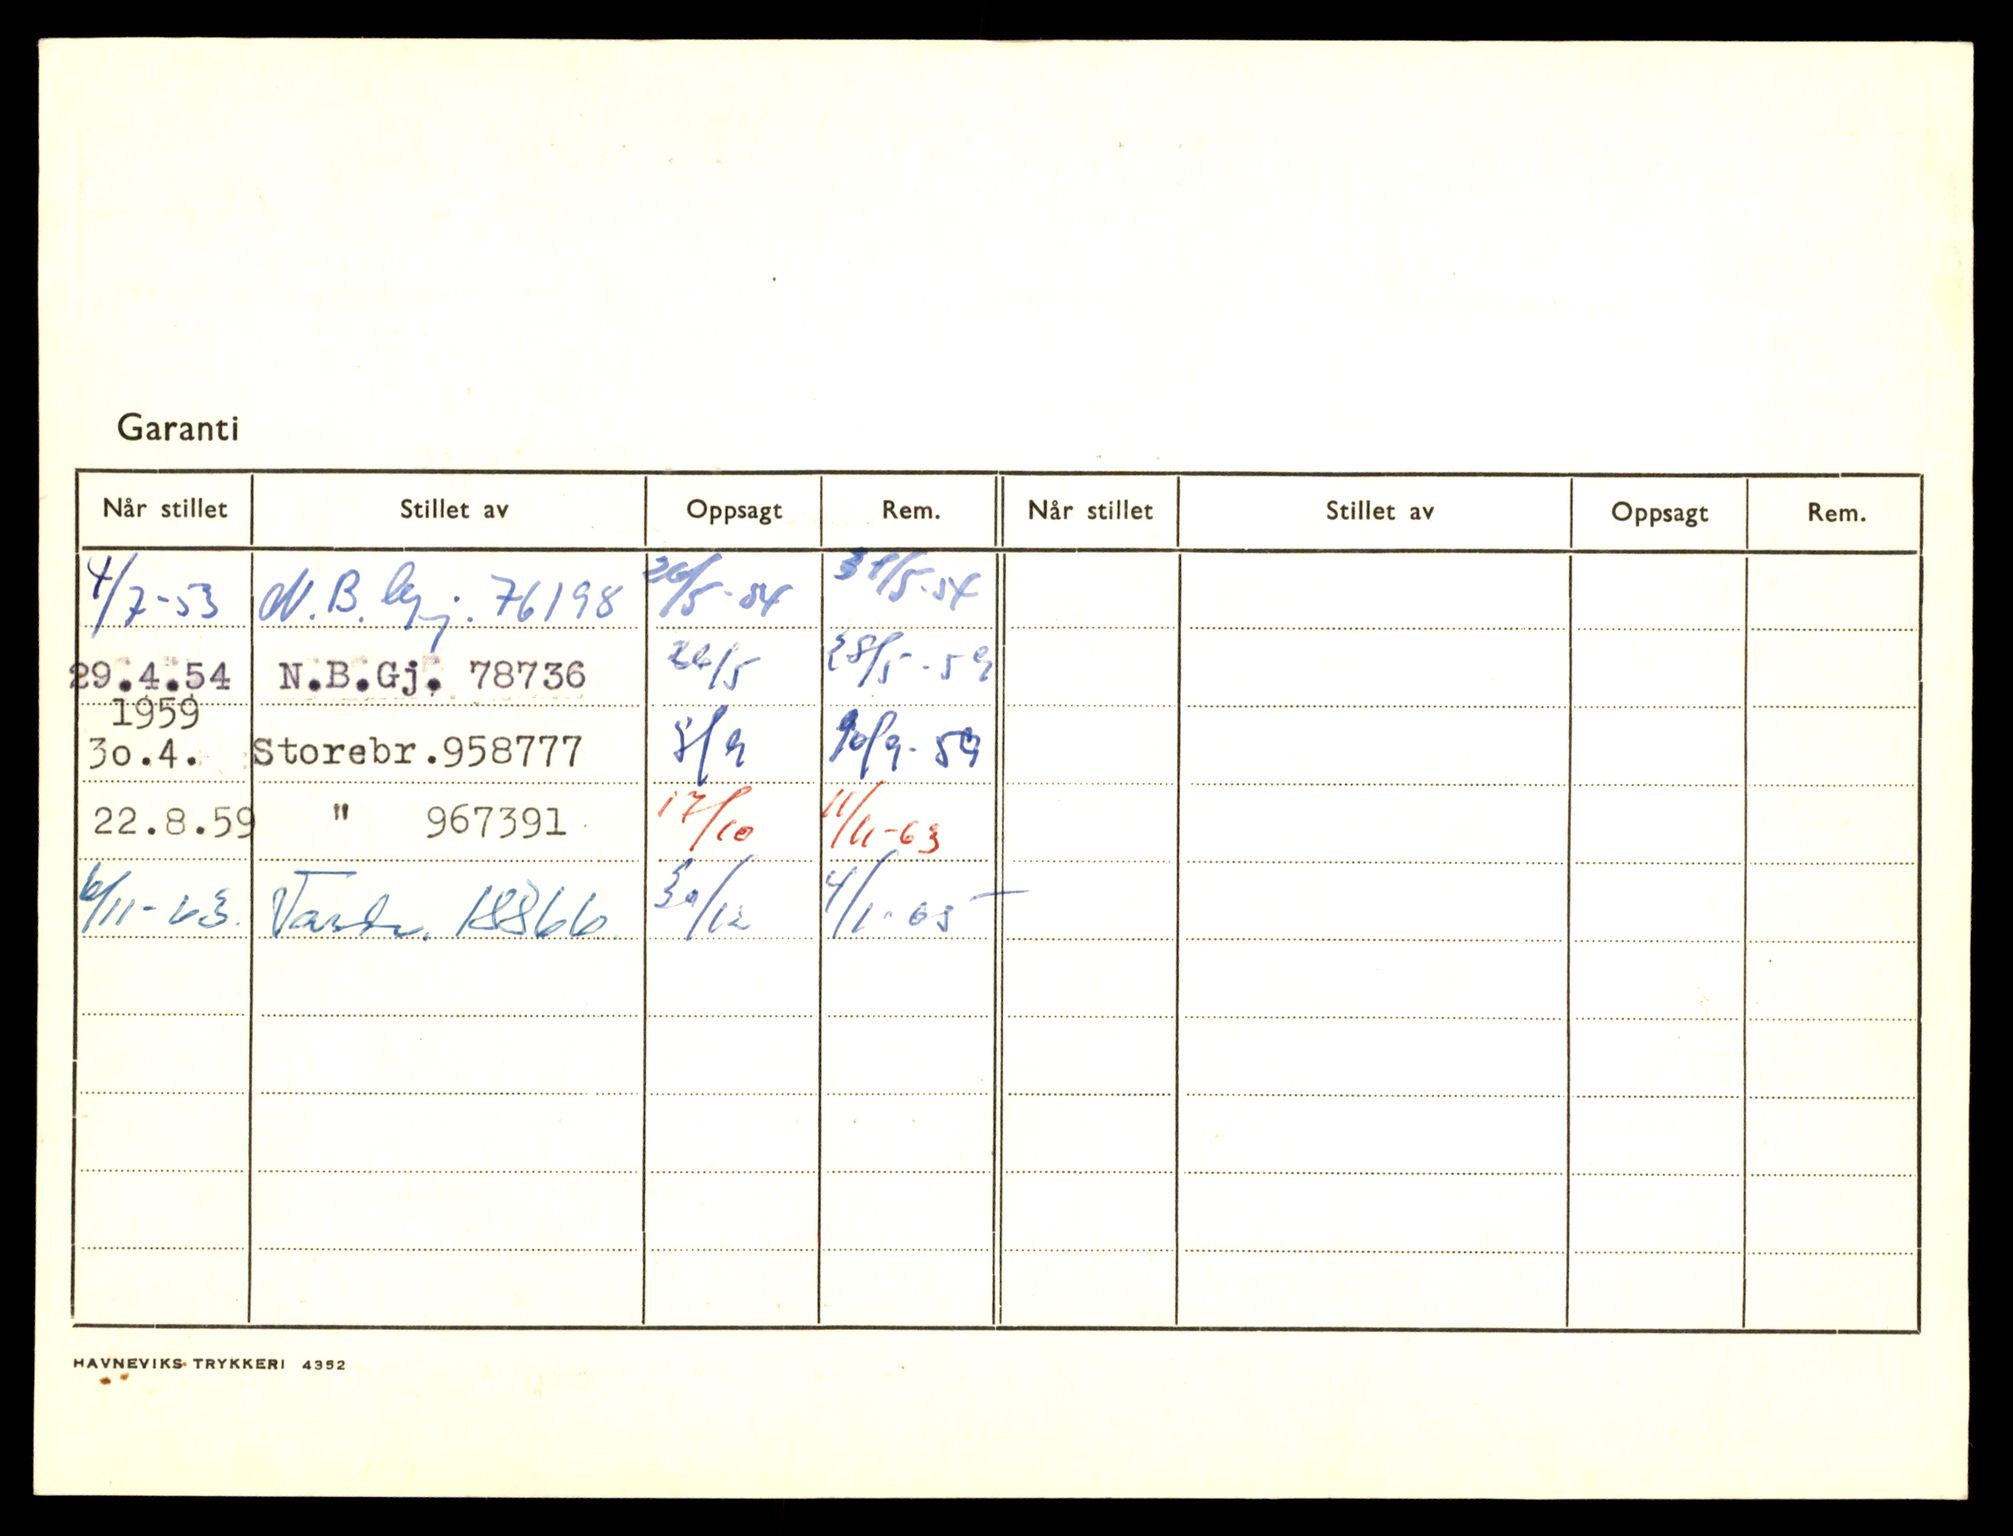 Garanti
Når stillet Stillet av Oppsagt Rem. Når stillet Stillet av Oppsagt Rem.
4/7-53 N.B.Gj. 76198 26/5-54 31/5-54
29.4.54 N.B.Gj. 78736 26/5 28/5-59
1959
30.4. Storebr.958777 8/9 10/9-59
22.8.59 " 967391 17/10 11/11-63
6/11-63. 18866 30/12 4/1-65
HAVNEVIKS TRYKKERI 4352